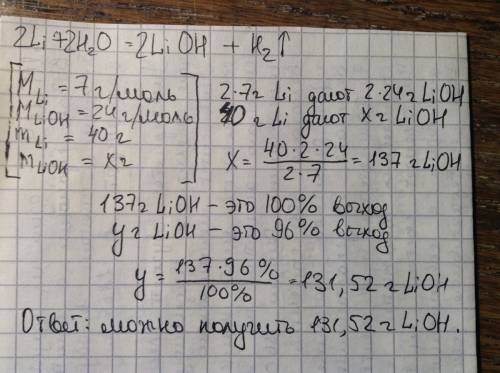 2Li+2H₂O = 2LiOH + H₂↑
M Li = 7 г/моль
M LiOH = 24 г/моль
m Li = 40 г
m LiOH = x г
2·7г Li дают 2·24г LiOH
40 г Li дают x г LiOH
x = 40·2·24 / 2·7 = 137 г LiOH
137г LiOH – это 100% выход
y г LiOH – это 96% выход
y = 137·96% / 100% = 131,52 г LiOH
Ответ: можно получить 131,52 г LiOH.